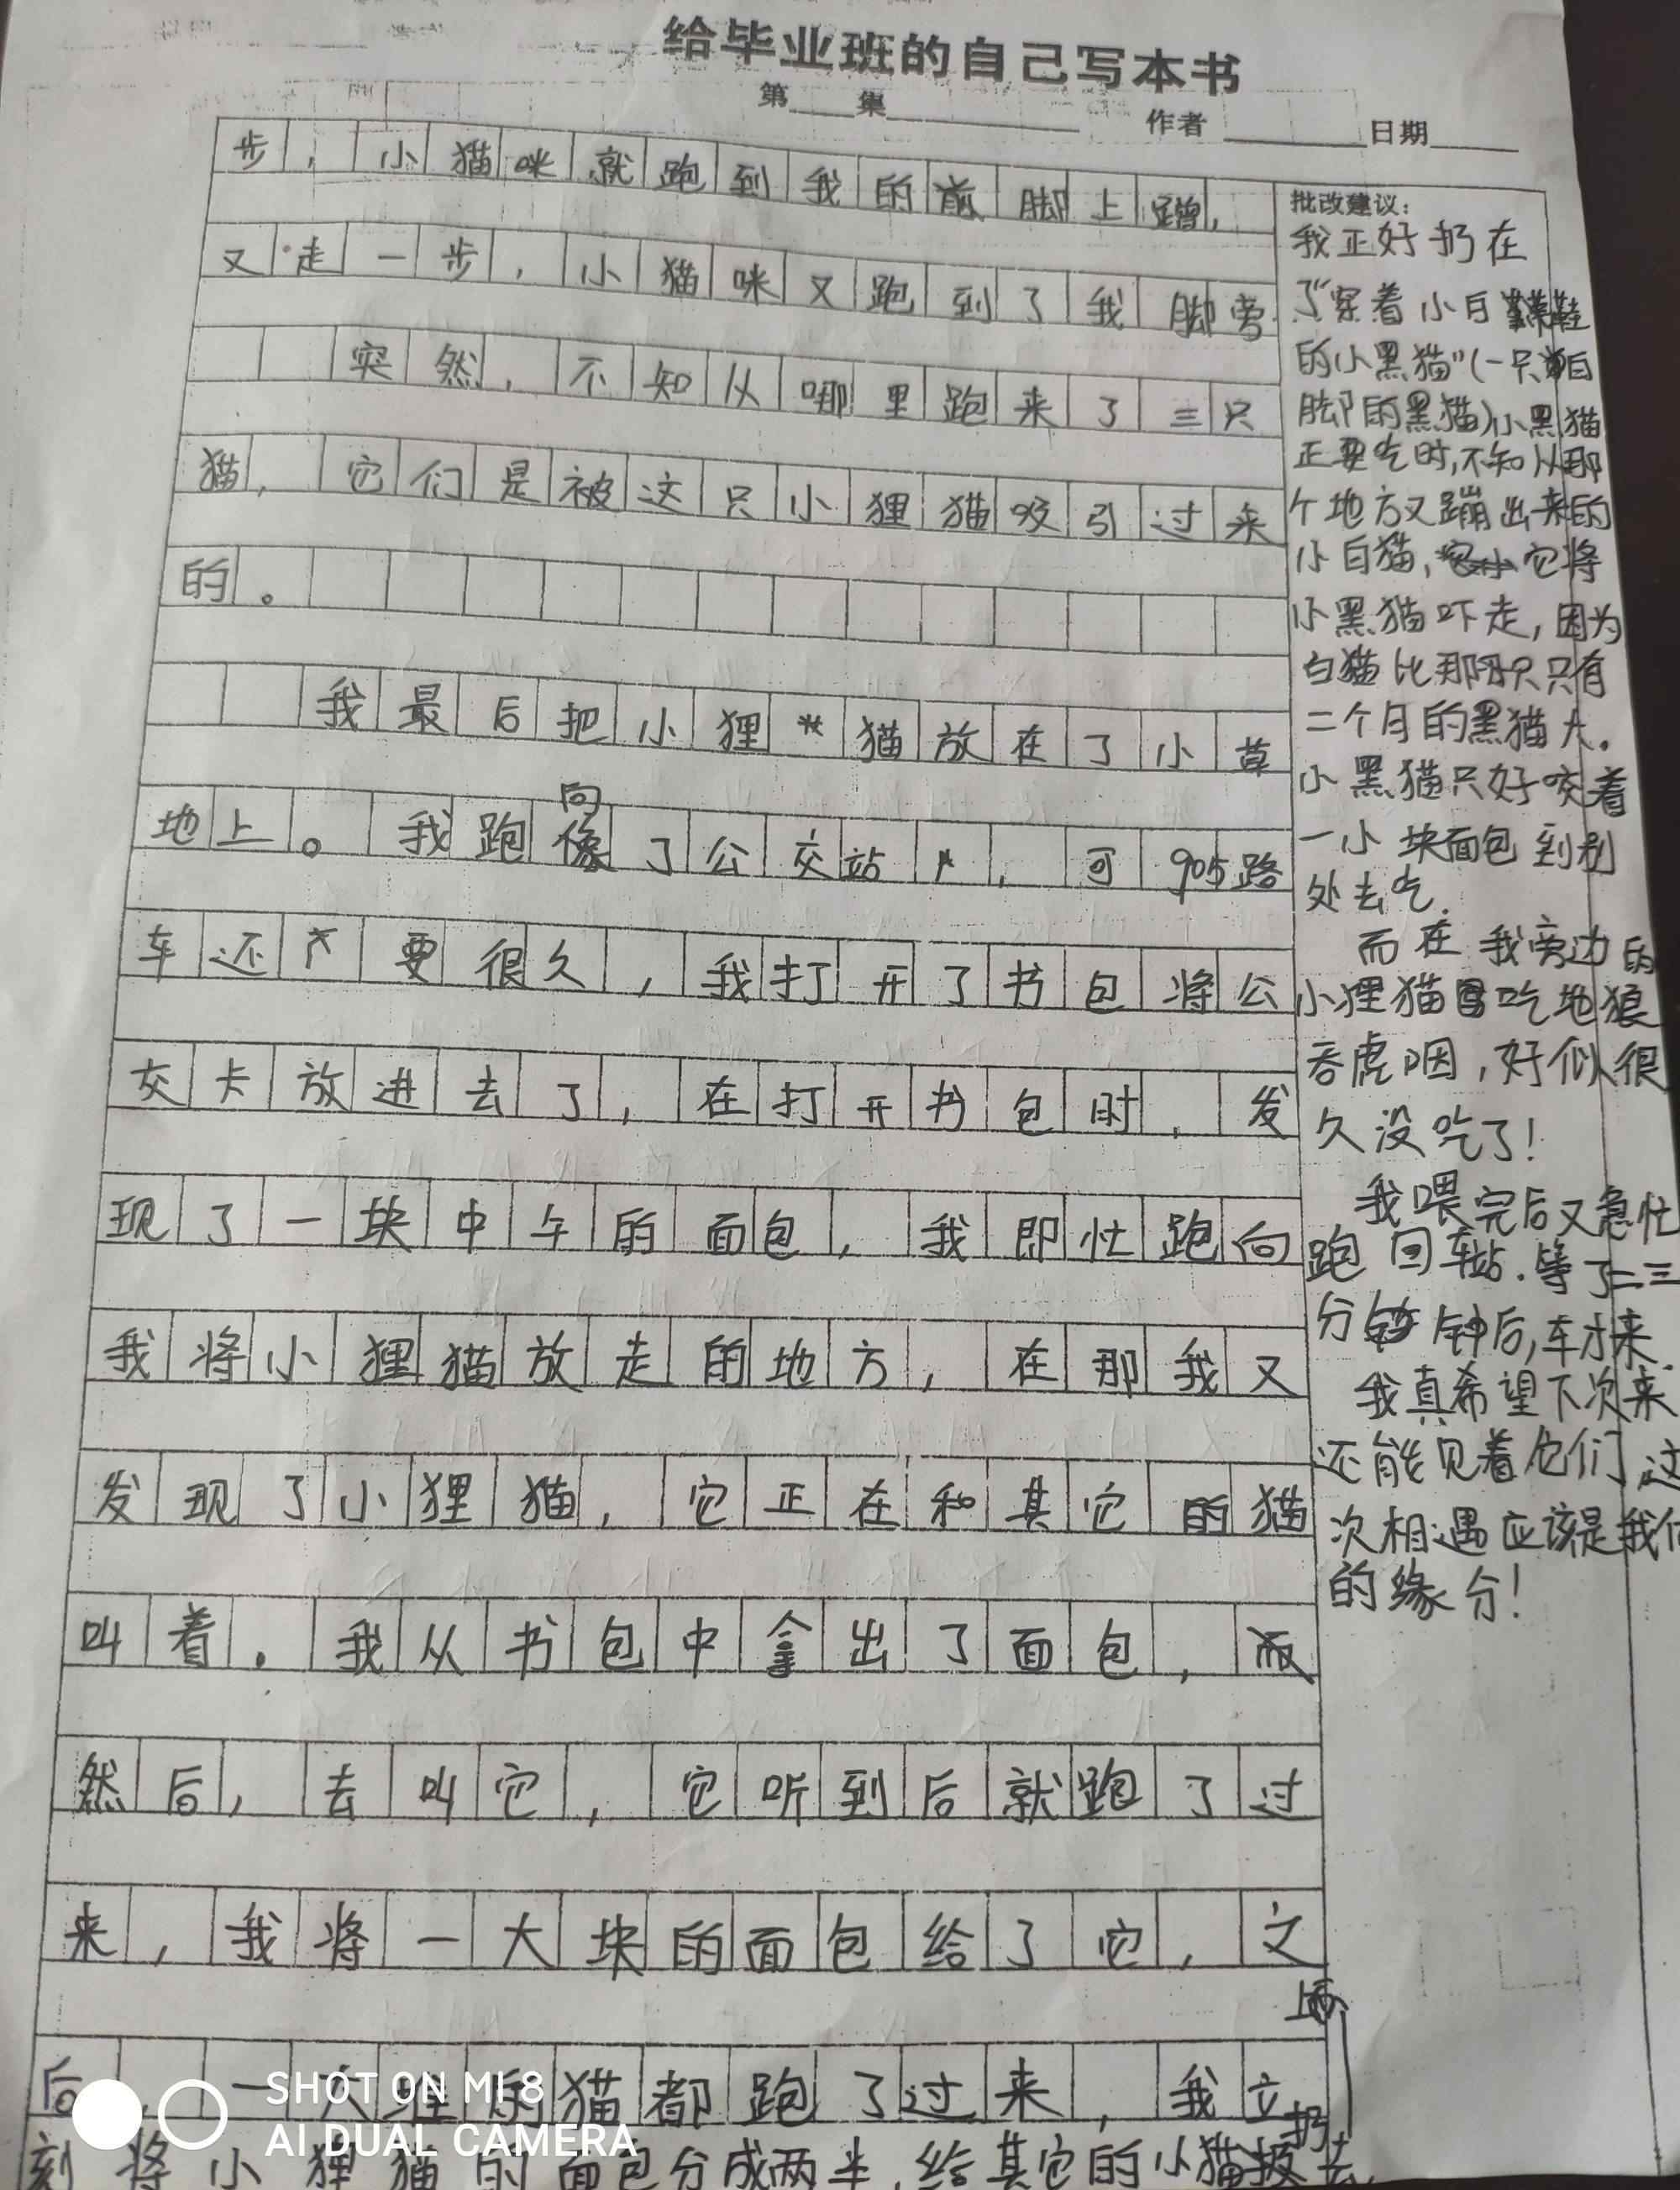 给毕业班的自己写本书
第 集 作者 日期
步，小猫咪就跑到我的前脚上蹭，
又走一步，小猫咪又跑到了我脚旁.
突然，不知从哪里跑来了三只
猫，它们是被这只小狸猫吸引过来
的。
我最后把小狸猫放在了小草
地上。我跑向了公交站，可905路
车还要很久，我打开了书包将公
交卡放进去了，在打开书包时，发
现了一块中午的面包，我即忙跑向
我将小狸猫放走的地方，在那我又
发现了小狸猫，它正在和其它的猫
叫着。我从书包中拿出了面包，
然后，去叫它，它听到后就跑了过
来，我将一大块的面包给了它，之
后，一大堆的猫都跑了过来，我立
刻将小狸猫的面包分成两半，给其它的小猫扔去
批改建议：
我正好扔在
了"穿着小白鞋
的小黑猫"(一只白
脚的黑猫)小黑猫
正要吃时,不知从那
个地方又蹦出来的
小白猫,它将
小黑猫吓走,因为
白猫比那只只有
二个月的黑猫大。
小黑猫只好咬着
一小块面包到别
处去吃.
而在我旁边的
小狸猫吃地狼
吞虎咽,好似很
久没吃了!
我喂完后又急忙
跑回车站.等了二三
分钟后,车才来.
我真希望下次来
还能见着它们,这
次相遇应该是我们
的缘分!
SHOT ON MI 8
AI DUAL CAMERA